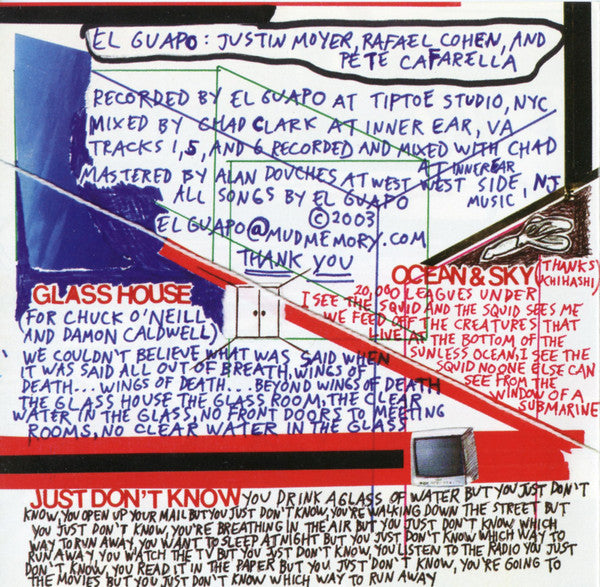 EL GUAPO: JUSTIN MOYER, RAFAEL COHEN, AND
PETE CAFARELLA
RECORDED BY EL GUAPO AT TIPTOE STUDIO, NYC
MIXED BY CHAD CLARK AT INNER EAR, VA
TRACKS 1, 5, AND 6 RECORDED AND MIXED WITH CHAD
AT INNER EAR
MASTERED BY ALAN DOUCHES AT WEST WEST SIDE, NJ
MUSIC
ALL SONGS BY EL GUAPO
©2003
ELGUAPO@MUDMEMORY.COM
THANK YOU
GLASS HOUSE
(FOR CHUCK O'NEILL
AND DAMON CALDWELL)
WE COULDN'T BELIEVE WHAT WAS SAID WHEN
IT WAS SAID ALL OUT OF BREATH, WINGS OF
DEATH... WINGS OF DEATH... BEYOND WINGS OF DEATH
THE GLASS HOUSE THE GLASS ROOM, THE CLEAR
WATER IN THE GLASS, NO FRONT DOORS TO MEETING
ROOMS, NO CLEAR WATER IN THE GLASS
OCEAN & SKY
(THANKS
ICHIHASHI)
20,000 LEAGUES UNDER
I SEE THE SQUID AND THE SQUID SEES ME
WE FEED OFF THE CREATURES THAT
LIVE AT THE BOTTOM OF THE
SUNLESS OCEAN, I SEE THE
SQUID NO ONE ELSE CAN
SEE FROM THE
WINDOW OF A
SUBMARINE
JUST DON'T KNOW YOU DRINK A GLASS OF WATER BUT YOU JUST DON'T
KNOW, YOU OPEN UP YOUR MAIL BUT YOU JUST DON'T KNOW, YOU'RE WALKING DOWN THE STREET BUT
YOU JUST DON'T KNOW, YOU'RE BREATHING IN THE AIR BUT YOU JUST DON'T KNOW WHICH
WAY TO RUN AWAY, YOU WANT TO SLEEP AT NIGHT BUT YOU JUST DON'T KNOW WHICH WAY TO
RUN AWAY, YOU WATCH THE TV BUT YOU JUST DON'T KNOW, YOU LISTEN TO THE RADIO YOU JUST
DON'T KNOW, YOU READ IT IN THE PAPER BUT YOU JUST DON'T KNOW, YOU'RE GOING TO
THE MOVIES BUT YOU JUST DON'T KNOW WHICH WAY TO RUN AWAY